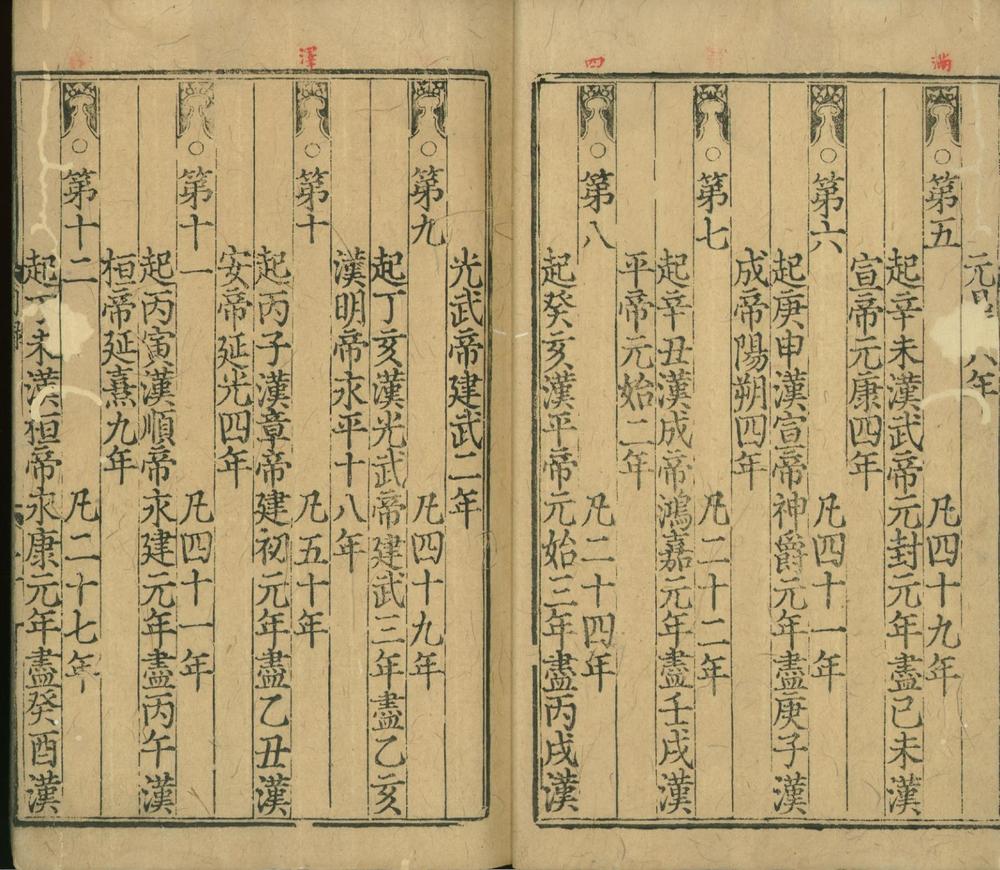 滿
四
澤
元 八年
○第五 凡四十九年
起辛未漢武帝元封元年盡己未漢
宣帝元康四年
○第六 凡四十一年
起庚申漢宣帝神爵元年盡庚子漢
成帝陽朔四年
○第七 凡二十二年
起辛丑漢成帝鴻嘉元年盡壬戌漢
平帝元始二年
○第八 凡二十四年
起癸亥漢平帝元始三年盡丙戌漢
光武帝建武二年
○第九 凡四十九年
起丁亥漢光武帝建武三年盡乙亥
漢明帝永平十八年
○第十 凡五十年
起丙子漢章帝建初元年盡乙丑漢
安帝延光四年
○第十一 凡四十一年
起丙寅漢順帝永建元年盡丙午漢
桓帝延熹九年
○第十二 凡二十七年
起丁未漢桓帝永康元年盡癸酉漢